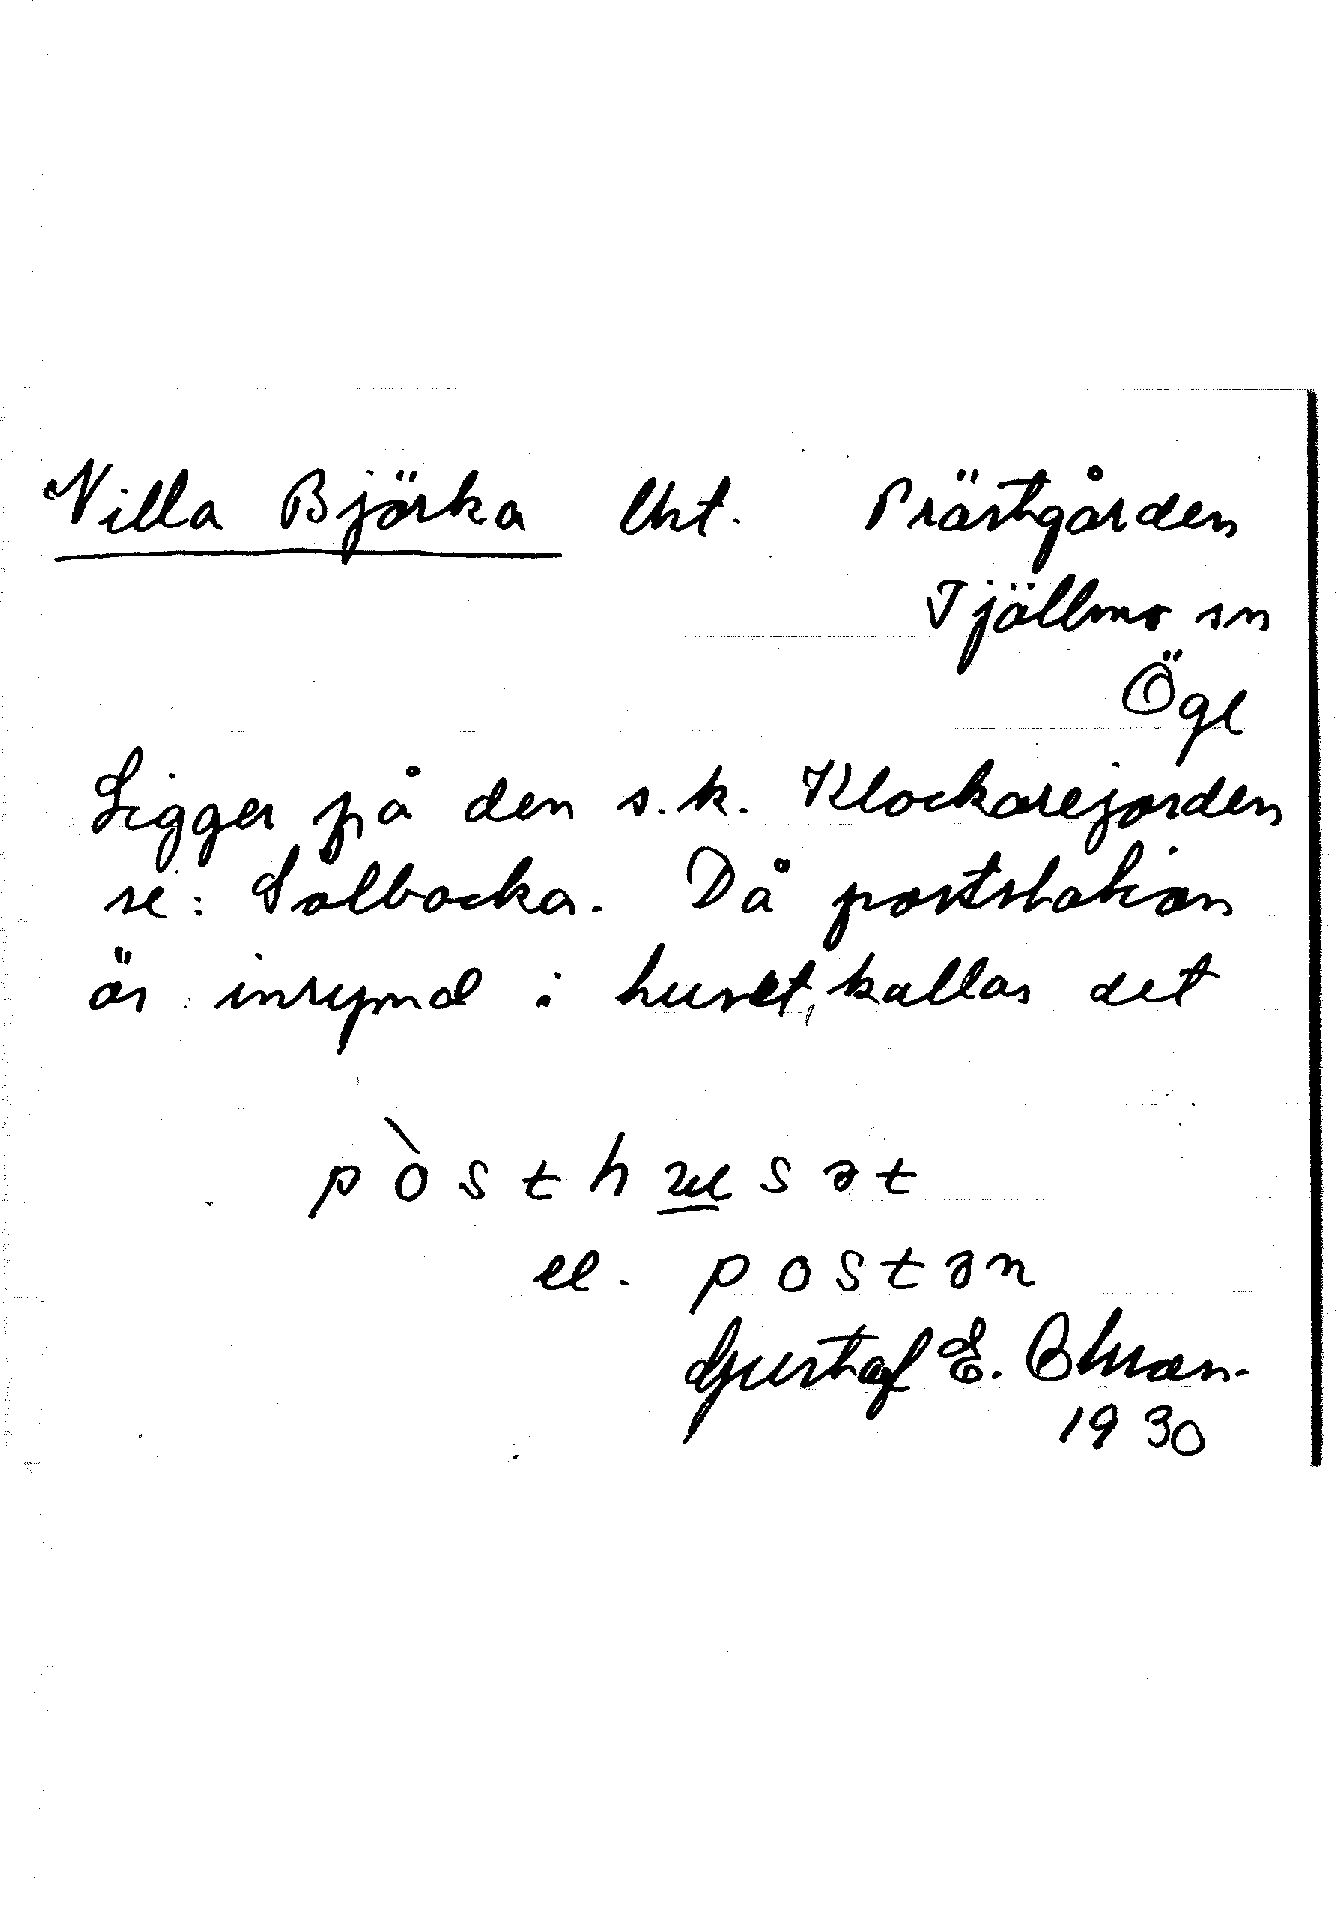 Villa Björka lht. Prästgården
Tjällmo sn
Ögl
Ligger på den s.k. Klockarejorden
se: Solbacka. Då poststation
är inrymd i huset, kallas det
pòsthusət
el. postən
Gustaf E.
1930